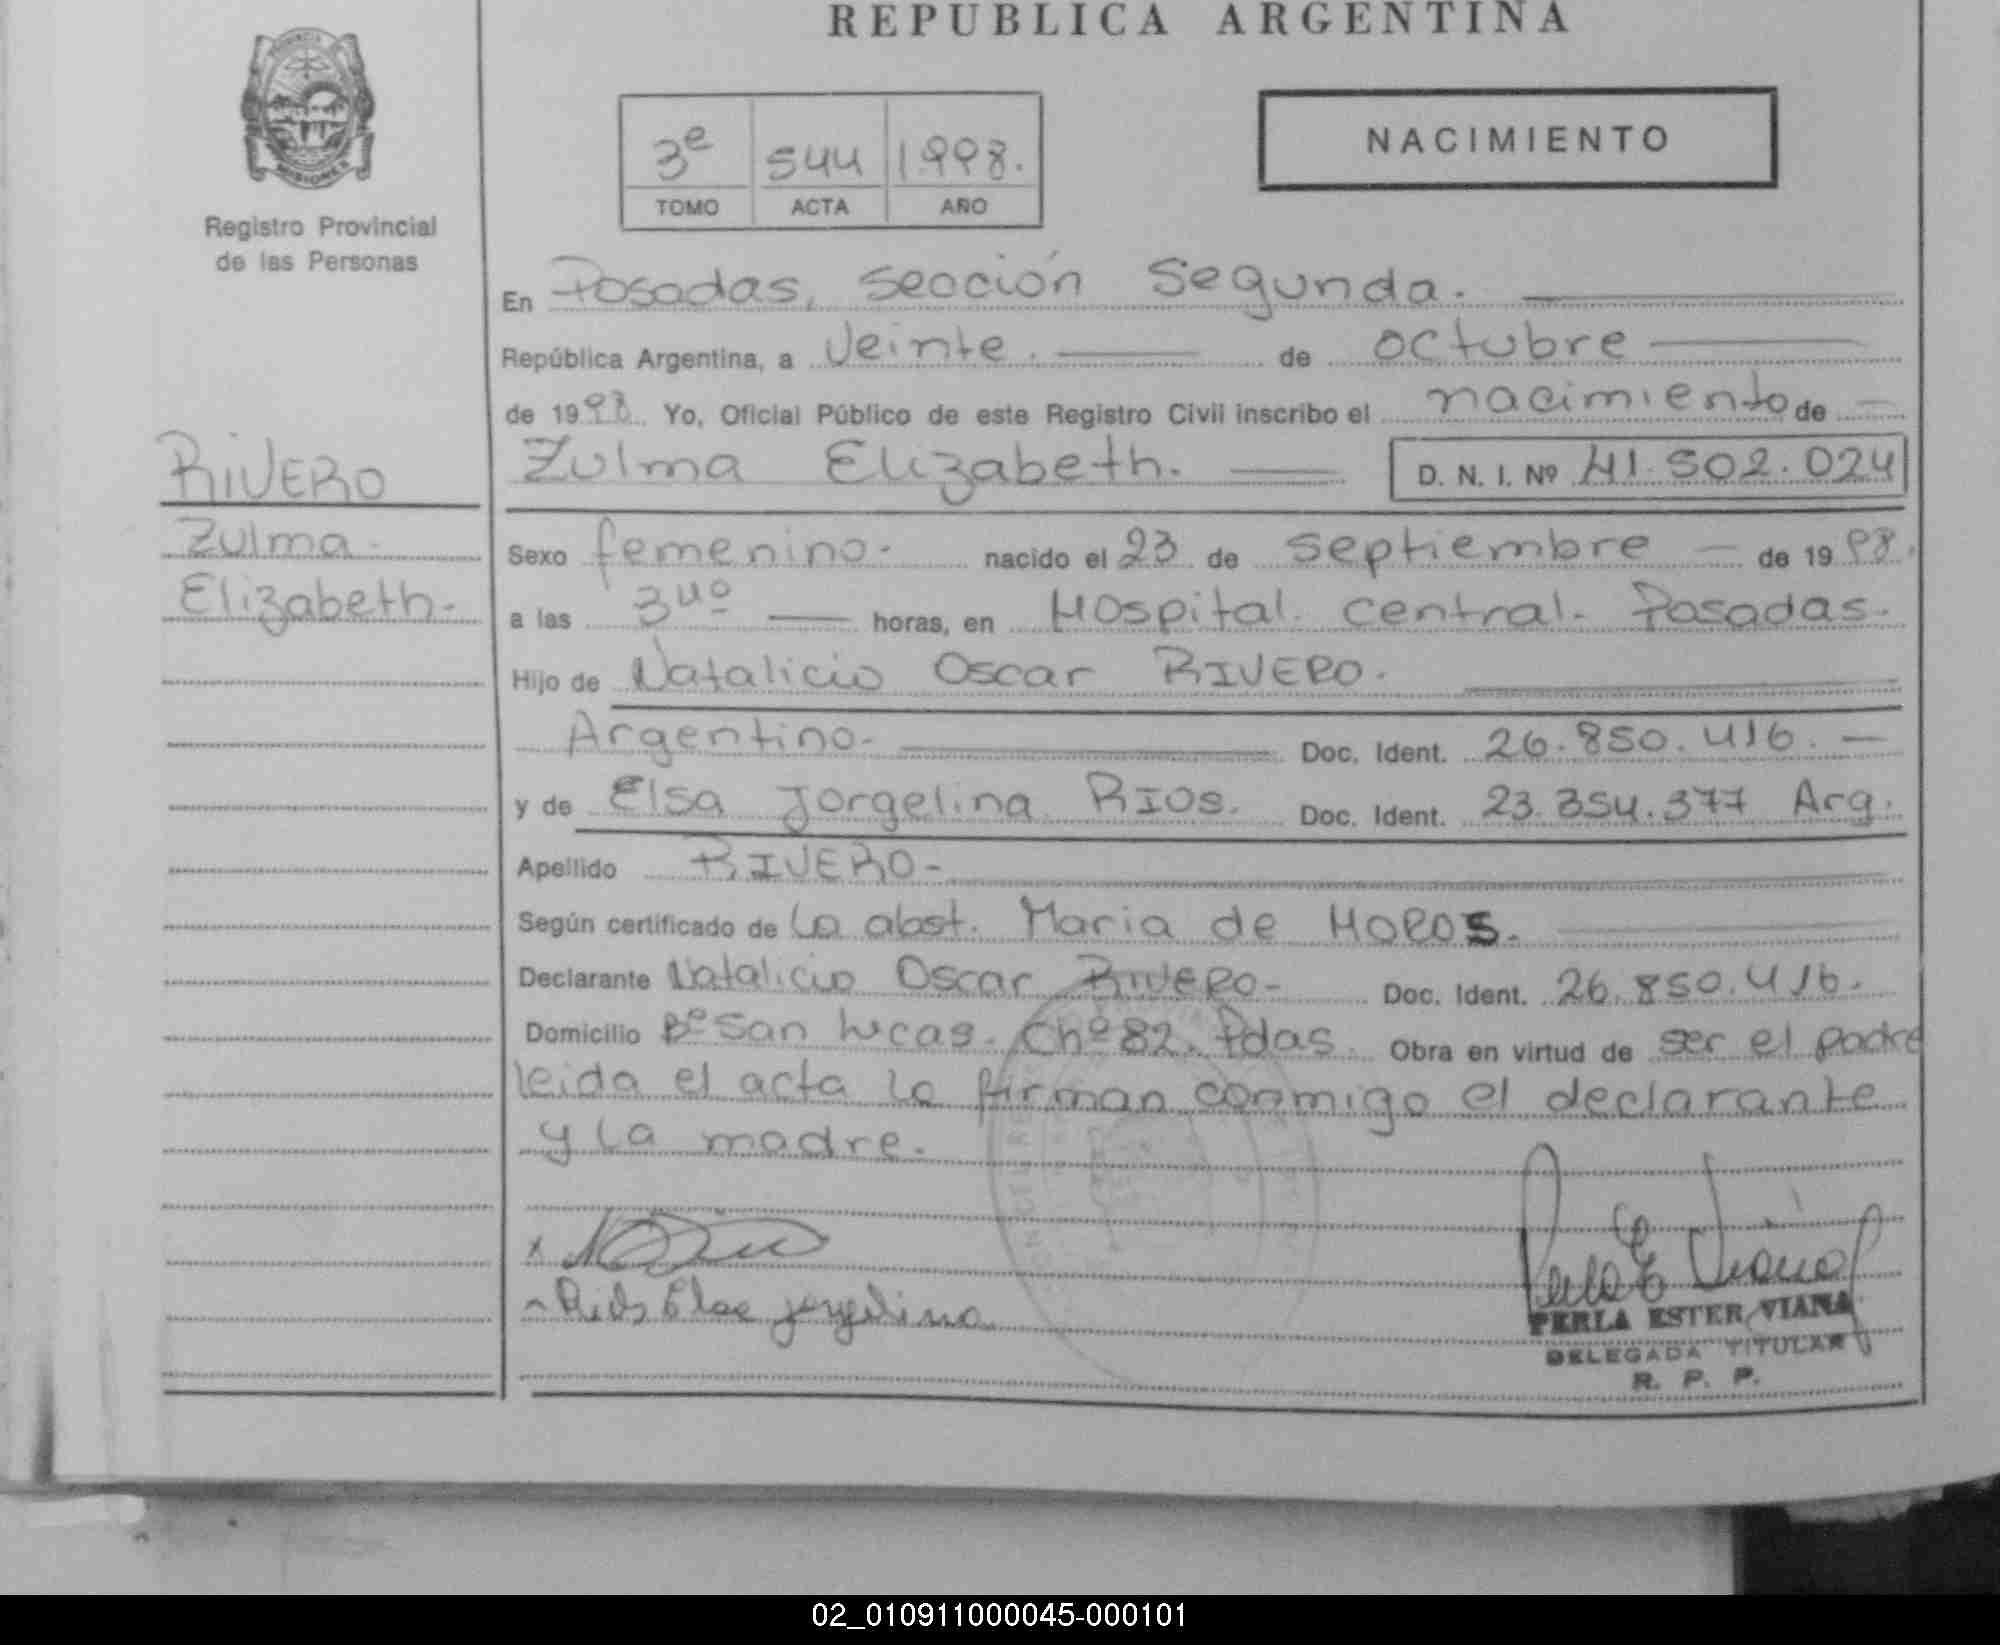 REPUBLICA ARGENTINA
MISIONES
Registro Provincial
de las Personas
3º 544 1.998.
TOMO ACTA AÑO
NACIMIENTO
En Posadas, sección Segunda.
República Argentina, a Veinte. de octubre
de 1998. Yo, Oficial Público de este Registro Civil inscribo el nacimiento de
Zulma Elizabeth. D. N. I. Nº 41.502.024
RIVERO
Zulma
Elizabeth.
Sexo femenino. nacido el 23 de septiembre de 1998.
a las 3 40 horas, en Hospital central. Posadas.
Hijo de Natalicio Oscar RIVERO.
Argentino. Doc. Ident. 26.850.416.
y de Elsa Jorgelina RIOS. Doc. Ident. 23.354.377 Arg.
Apellido RIVERO-
Según certificado de la obst. Maria de
Declarante Natalicio Oscar RIVERO- Doc. Ident. 26.850.416.
Domicilio Bº San Lucas. Chº 82. Pdas. Obra en virtud de ser el padre
leida el acta la firman conmigo el declarante
y la madre.
Rios Elsa jorgelina
PERLA ESTER VIANA
DELEGADA TITULAR
R. P. P.
02_010911000045-000101